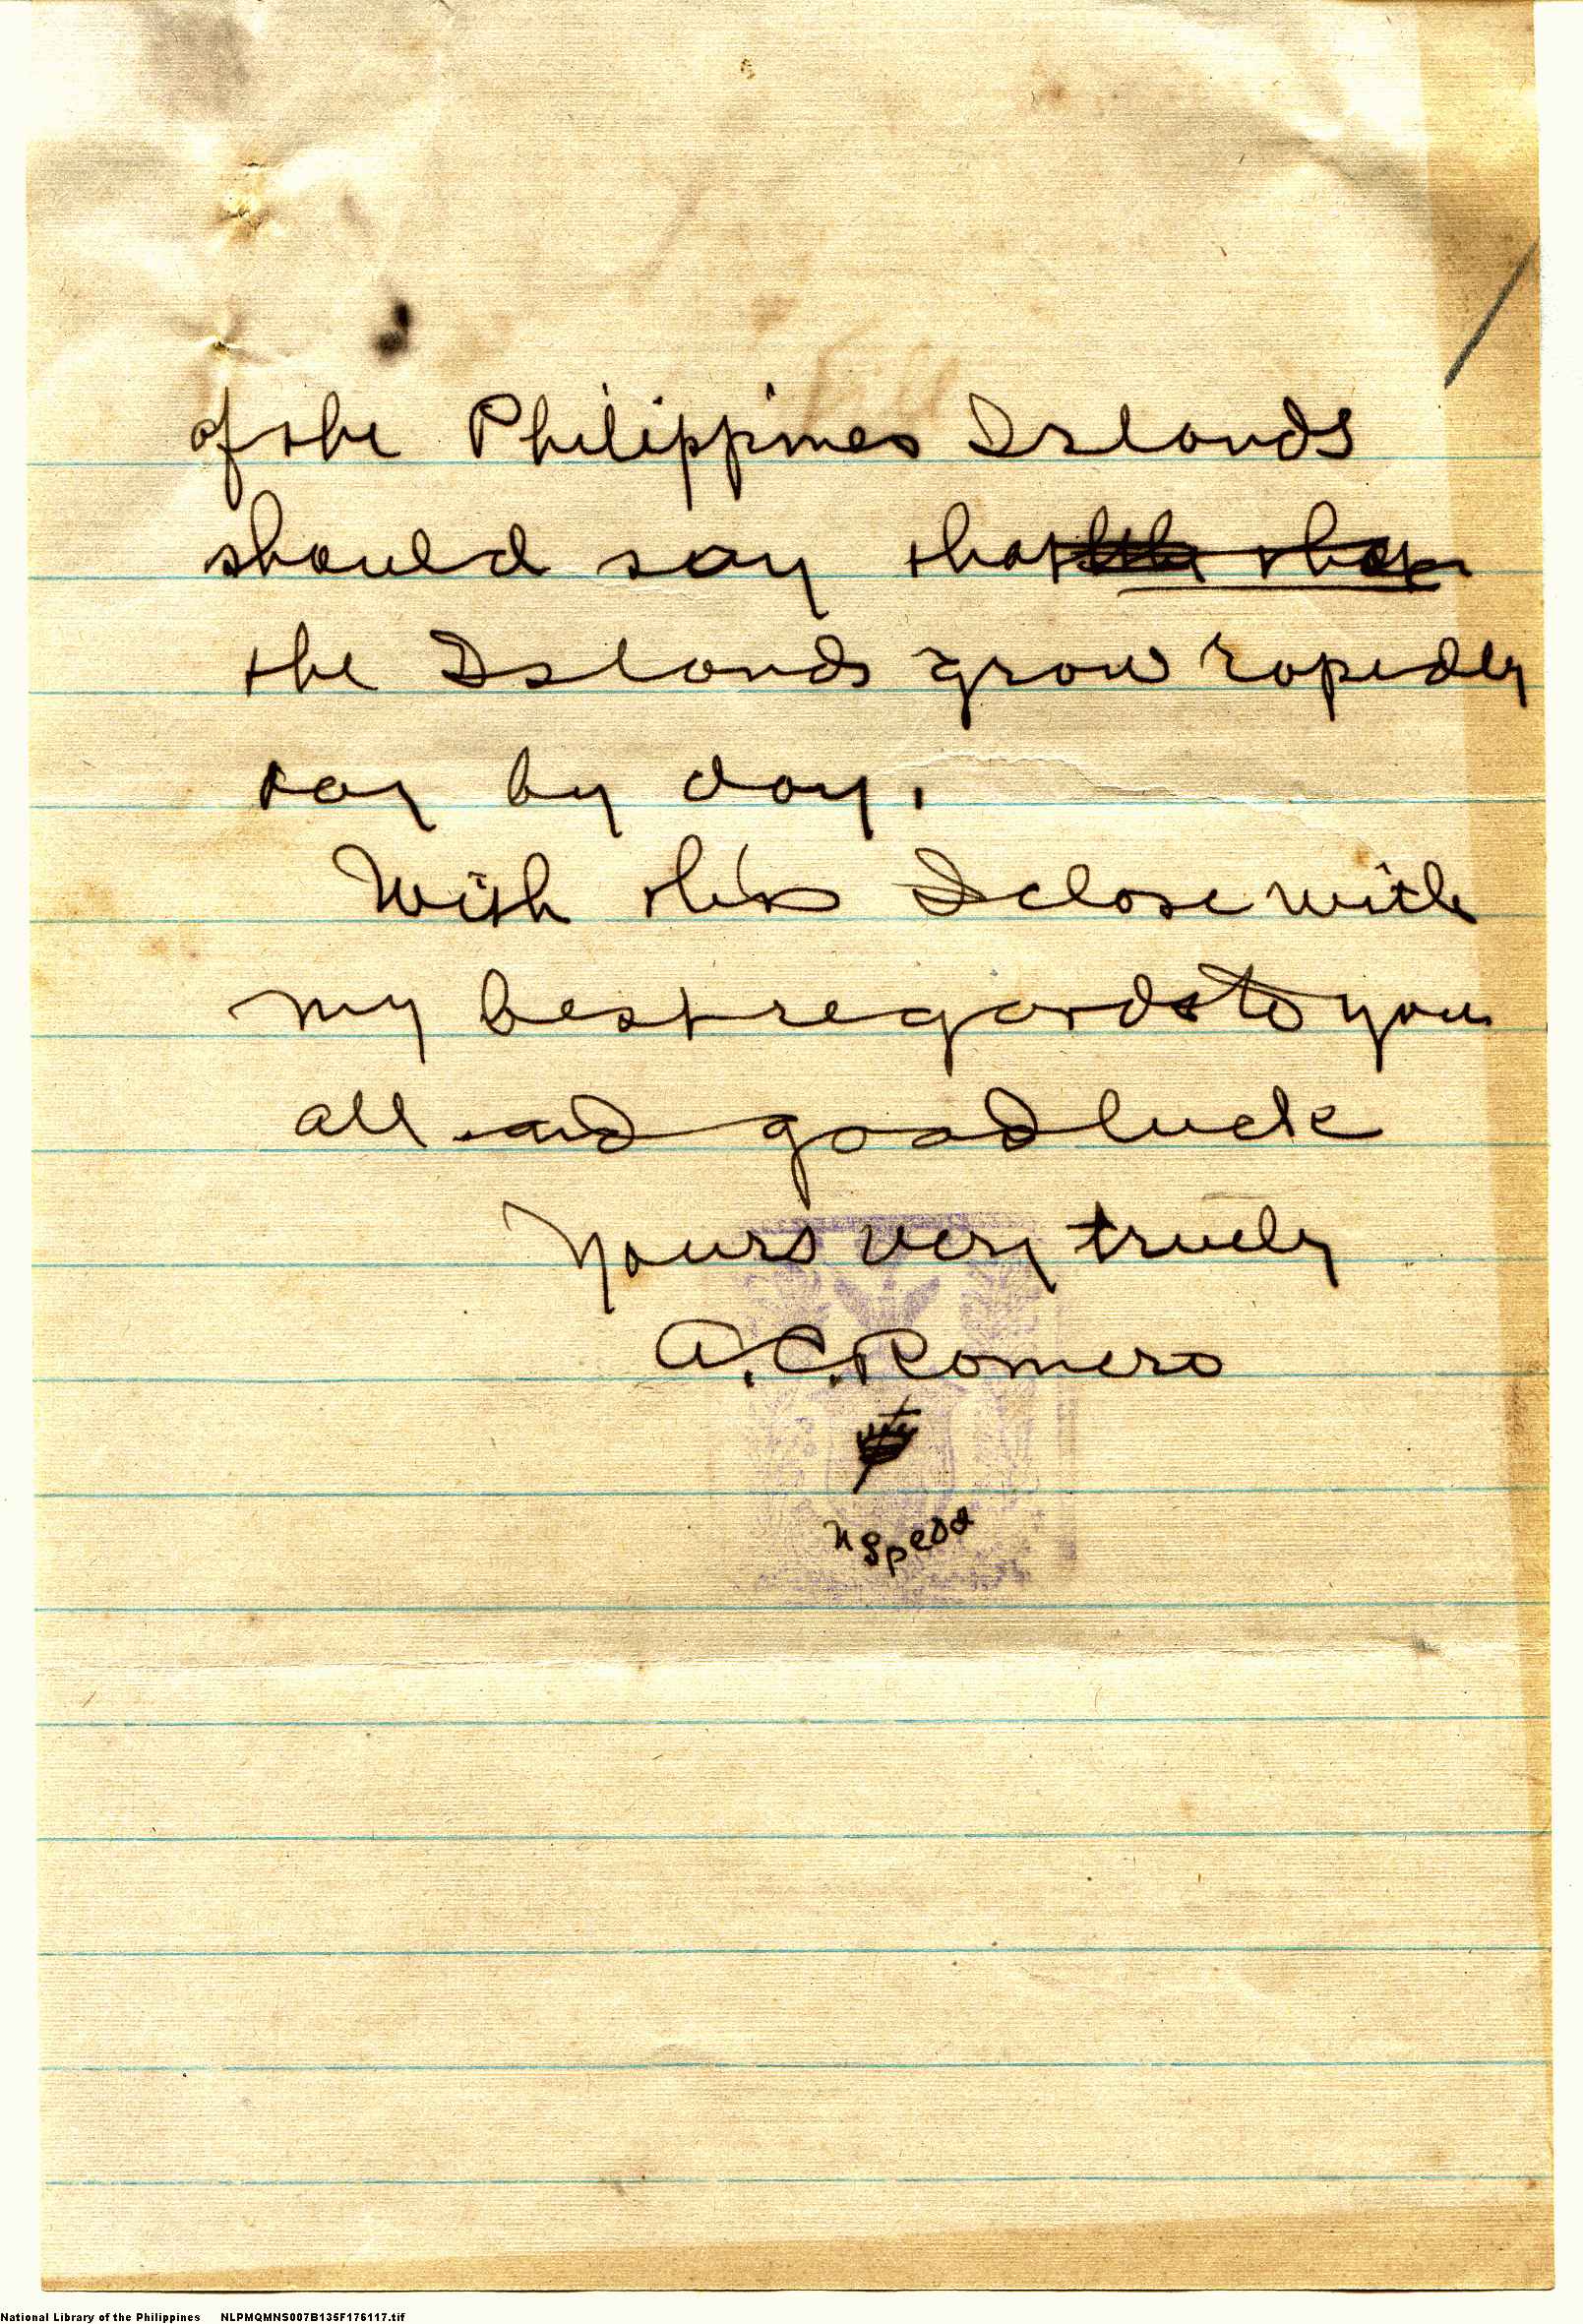 of the Philippines Islands
should say that
the Islands grow rapidly
day by day.
With this I close with
my best regards to you
all and good luck
Yours very truely
A.C. Romero
National Library of the Philippines NLPMQMNS007B135F176117.tif